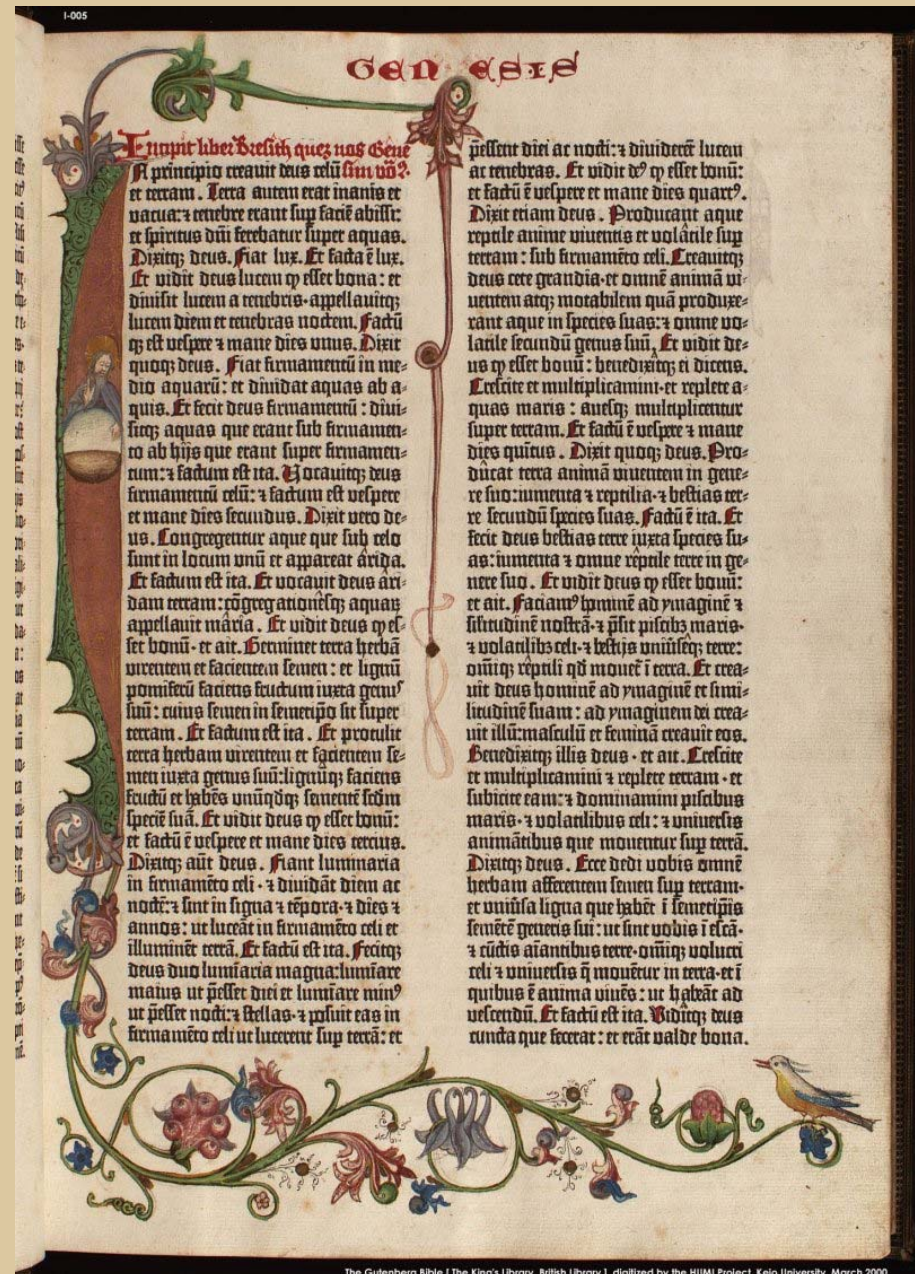 I-005
GENESIS
Incipit liber Bresith quez nos Gene
In principio creauit deus celū sim vo?.
et terram. Terra autem erat inanis et
vacua: ⁊ tenebre erant sup facie abissi:
et spiritus dn̄i ferebatur super aquas.
Dixitqꝫ deus. Fiat lux. Et facta ē lux.
Et vidit deus lucem ꝙ esset bona: et
diuisit lucem a tenebris · appellauitqꝫ
lucem diem et tenebras noctem. Factū
qꝫ est vespre et mane dies vnus. Dixit
quoqꝫ deus. Fiat firmamentū in me⸗
dio aquarū: et diuidat aquas ab a⸗
quis. Et fecit deus firmamentū: diui⸗
sitqꝫ aquas que erant sub firmamen⸗
to ab hijs que erant super firmamen⸗
tum: ⁊ factum est ita. Vocauitqꝫ deus
firmamentū celū: ⁊ factum est vespere
et mane dies secundus. Dixit vero de⸗
us. Congregentur aque que sub celo
sunt in locum vnū et appareat arida.
Et factum est ita. Et vocauit deus ari⸗
dam terram: cōgregationesqꝫ aquaꝝ
appellauit maria. Et vidit deus ꝙ es⸗
set bonū · et ait. Germinet terra herbā
virentem et facientem semen: et lignū
pomiferū faciens fructum iuxta genus
suū: cuius semen in semetip̄o sit super
terram. Et factum est ita. Et protulit
terra herbam virentem et facientem se⸗
men iuxta genus suū: lignūqꝫ faciens
fructū et habēs vnūqdqꝫ sementē scd̄m
speciē suā. Et vidit deus ꝙ esset bonū:
et factū ē vespere et mane dies tercius.
Dixitqꝫ aūt deus. Fiant luminaria
in firmamēto celi · ⁊ diuidāt diem ac
noctē: ⁊ sint in signa ⁊ tēpora · ⁊ dies ⁊
annos: ut luceāt in firmamēto celi et
illuminēt terrā. Et factū est ita. Fecitqꝫ
deus duo luminaria magna: luminare
maius ut p̄esset diei et luminare minꝰ
ut p̄esset nocti: ⁊ stellas · ⁊ posuit eas in
firmamēto celi ut lucerent sup terrā: et
p̄essent diei ac nocti: ⁊ diuiderēt lucem
ac tenebras. Et vidit deꝰ ꝙ esset bonū:
et factū ē vespere et mane dies quartꝰ.
Dixit etiam deus. Producant aque
reptile anime viuentis et volatile sup
terram: sub firmamēto celi. Creauitqꝫ
deus cete grandia · et omnē animā vi⸗
uentem atqꝫ motabilem quā produxe⸗
rant aque in species suas: ⁊ omne vo⸗
latile secundū genus suū. Et vidit de⸗
us ꝙ esset bonū: benedixitqꝫ ei dicens.
Crescite et multiplicamini · et replete a⸗
quas maris: auesqꝫ multiplicentur
super terram. Et factū ē vespere ⁊ mane
dies quitus. Dixit quoqꝫ deus. Pro⸗
ducat terra animā viuentem in gene⸗
re suo: iumenta ⁊ reptilia · ⁊ bestias ter⸗
re secundū species suas. Factū ē ita. Et
fecit deus bestias terre iuxta species su⸗
as: iumenta ⁊ omne reptile terre in ge⸗
nere suo. Et vidit deus ꝙ esset bonū:
et ait. Faciamꝰ hominē ad ymaginē ⁊
silitudinē nostrā · ⁊ p̄sit piscibꝫ maris ·
⁊ volatilibꝫ celi · ⁊ bestijs vniūseqꝫ terre:
omīqꝫ reptili qd̄ mouet̄ ī terra. Et crea⸗
uit deus hominē ad ymaginē et simi⸗
litudinē suam: ad ymaginem dei crea⸗
uit illū: masculū et feminā creauit eos.
Benedixitqꝫ illis deus · et ait. Crescite
et multiplicamini ⁊ replete terram · et
subicite eam: ⁊ dominamini piscibus
maris · ⁊ volatilibus celi: ⁊ uniuersis
animātibus que mouentur sup terrā.
Dixitqꝫ deus. Ecce dedi vobis omnē
herbam afferentem semen sup terram ·
et vniūsa ligna que habēt ī semetip̄is
semētē generis sui: ut sint vobis ī escā ·
⁊ cūctis aīantibus terre · omīqꝫ volucri
celi ⁊ vniuersis q̄ mouētur in terra · et ī
quibus ē anima viuēs: ut habeāt ad
vescendū. Et factū est ita. Viditqꝫ deus
cuncta que fecerat: et erāt valde bona.
The Gutenberg Bible [The King's Library, British Library], digitized by the HUMI Project, Keio University, March 2000